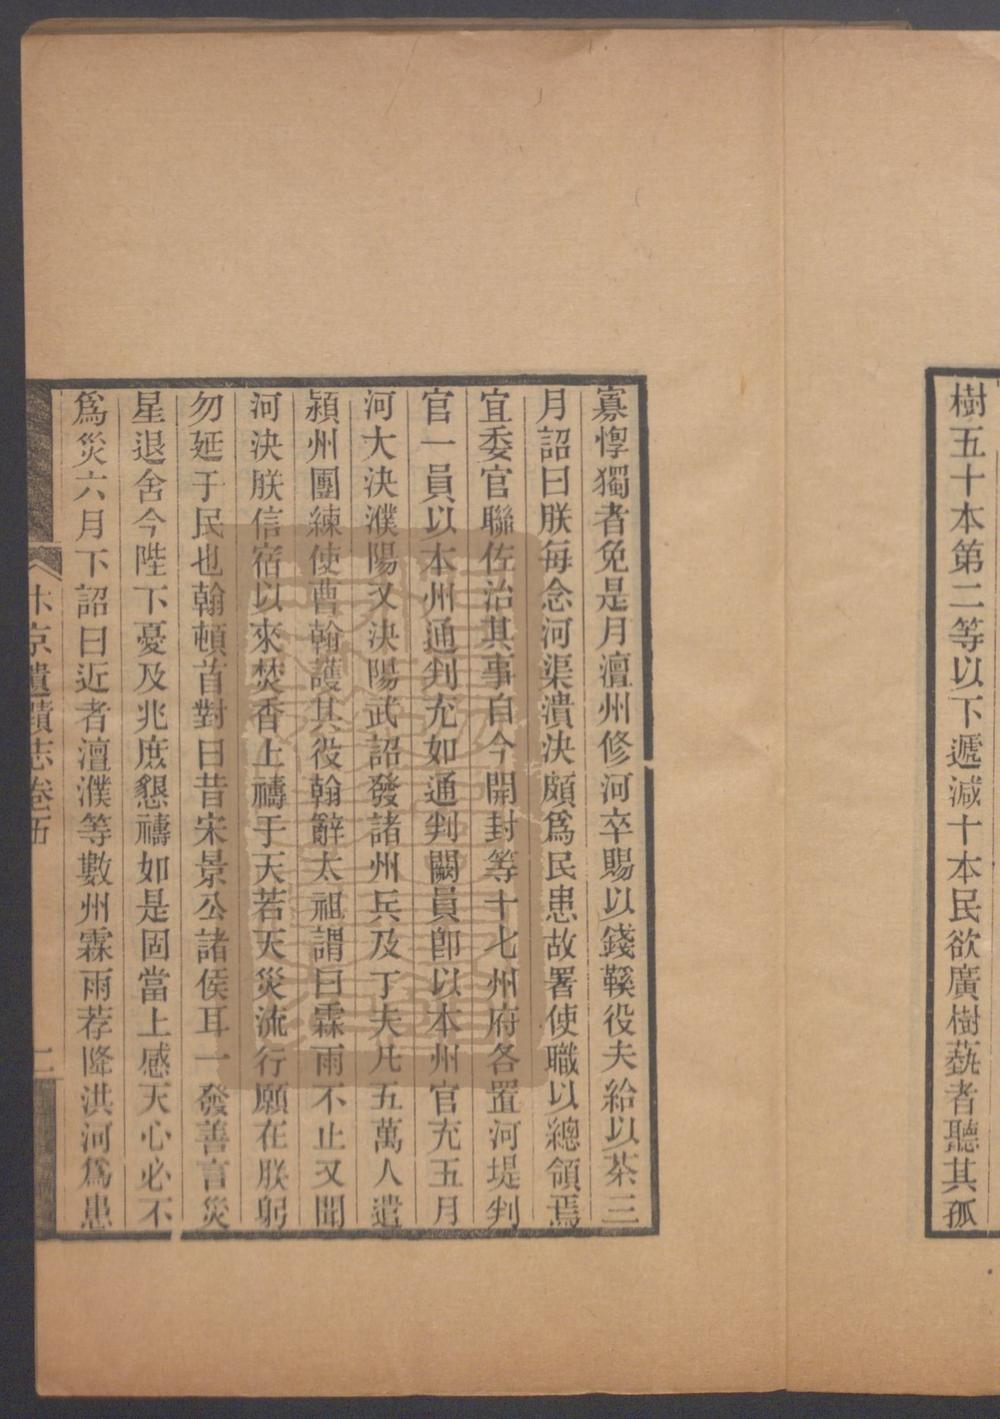 樹五十本第二等以下遞減十本民欲廣樹蓺者聽其孤
寡惸獨者免是月澶州修河卒賜以錢鞵役夫給以茶三
月詔曰朕每念河渠潰決頗爲民患故署使職以總領焉
宜委官聯佐治其事自今開封等十七州府各置河堤判
官一員以本州通判充如通判闕員卽以本州官充五月
河大決濮陽又決陽武詔發諸州兵及丁夫凡五萬人遣
潁州團練使曹翰護其役翰辭太祖謂曰霖雨不止又聞
河決朕信宿以來焚香上禱于天若天災流行願在朕躬
勿延于民也翰頓首對曰昔宋景公諸侯耳一發善言災
星退舍今陛下憂及兆庶懇禱如是固當上感天心必不
爲災六月下詔曰近者澶濮等數州霖雨荐降洪河爲患
汴京遺蹟志卷五
二